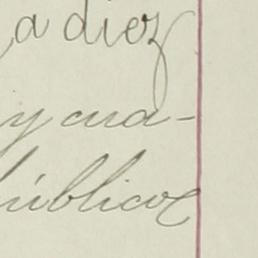 a diez
y cua-
públicos